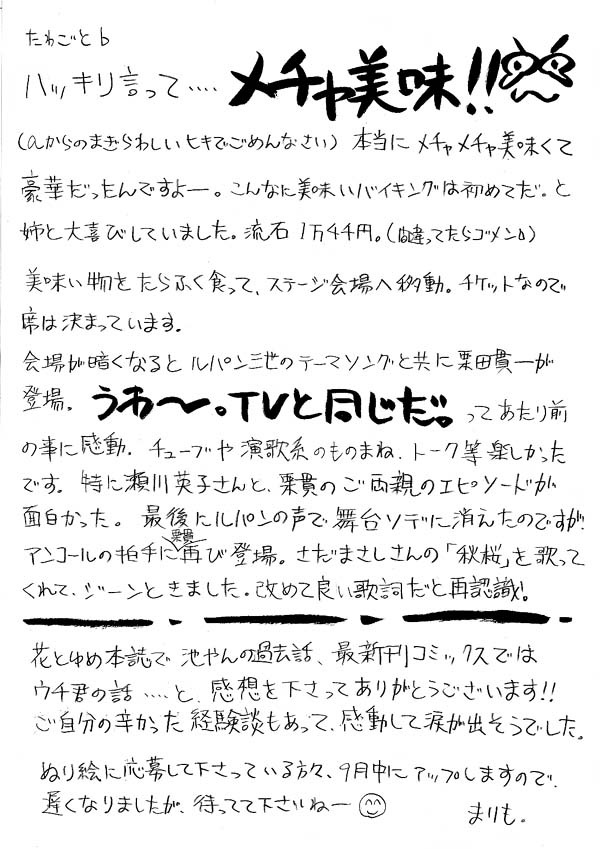 たわごとb
ハッキリ言って‥‥メチャ美味!!
(aからのまぎらわしいヒキでごめんなさい) 本当にメチャメチャ美味くて
豪華だったんですよー。こんなに美味いバイキングは初めてだ。と
姉と大喜びしていました。流石1万44円。(間違ってたらゴメン)
美味い物をたらふく食って、ステージ会場へ移動。チケットなので
席は決まっています。
会場が暗くなるとルパン三世のテーマソングと共に栗田貫一が
登場。うわ〜。TVと同じだ。ってあたり前
の事に感動。チューブや演歌系のものまね、トーク等楽しかった
です。特に瀬川英子さんと、栗貫のご両親のエピソードが
面白かった。最後にルパンの声で舞台ソデに消えたのですが
アンコールの拍手に栗貫再び登場。さだまさしさんの「秋桜」を歌って
くれて、ジーンときました。改めて良い歌詞だと再認識!
花とゆめ本誌で池やんの過去話、最新刊コミックスでは
ウチ君の話‥‥と、感想を下さってありがとうございます!!
ご自分の辛かった経験談もあって、感動して涙が出そうでした。
ぬり絵に応募して下さっている方々、9月中にアップしますので、
遅くなりましたが、待ってて下さいねー
まりも。